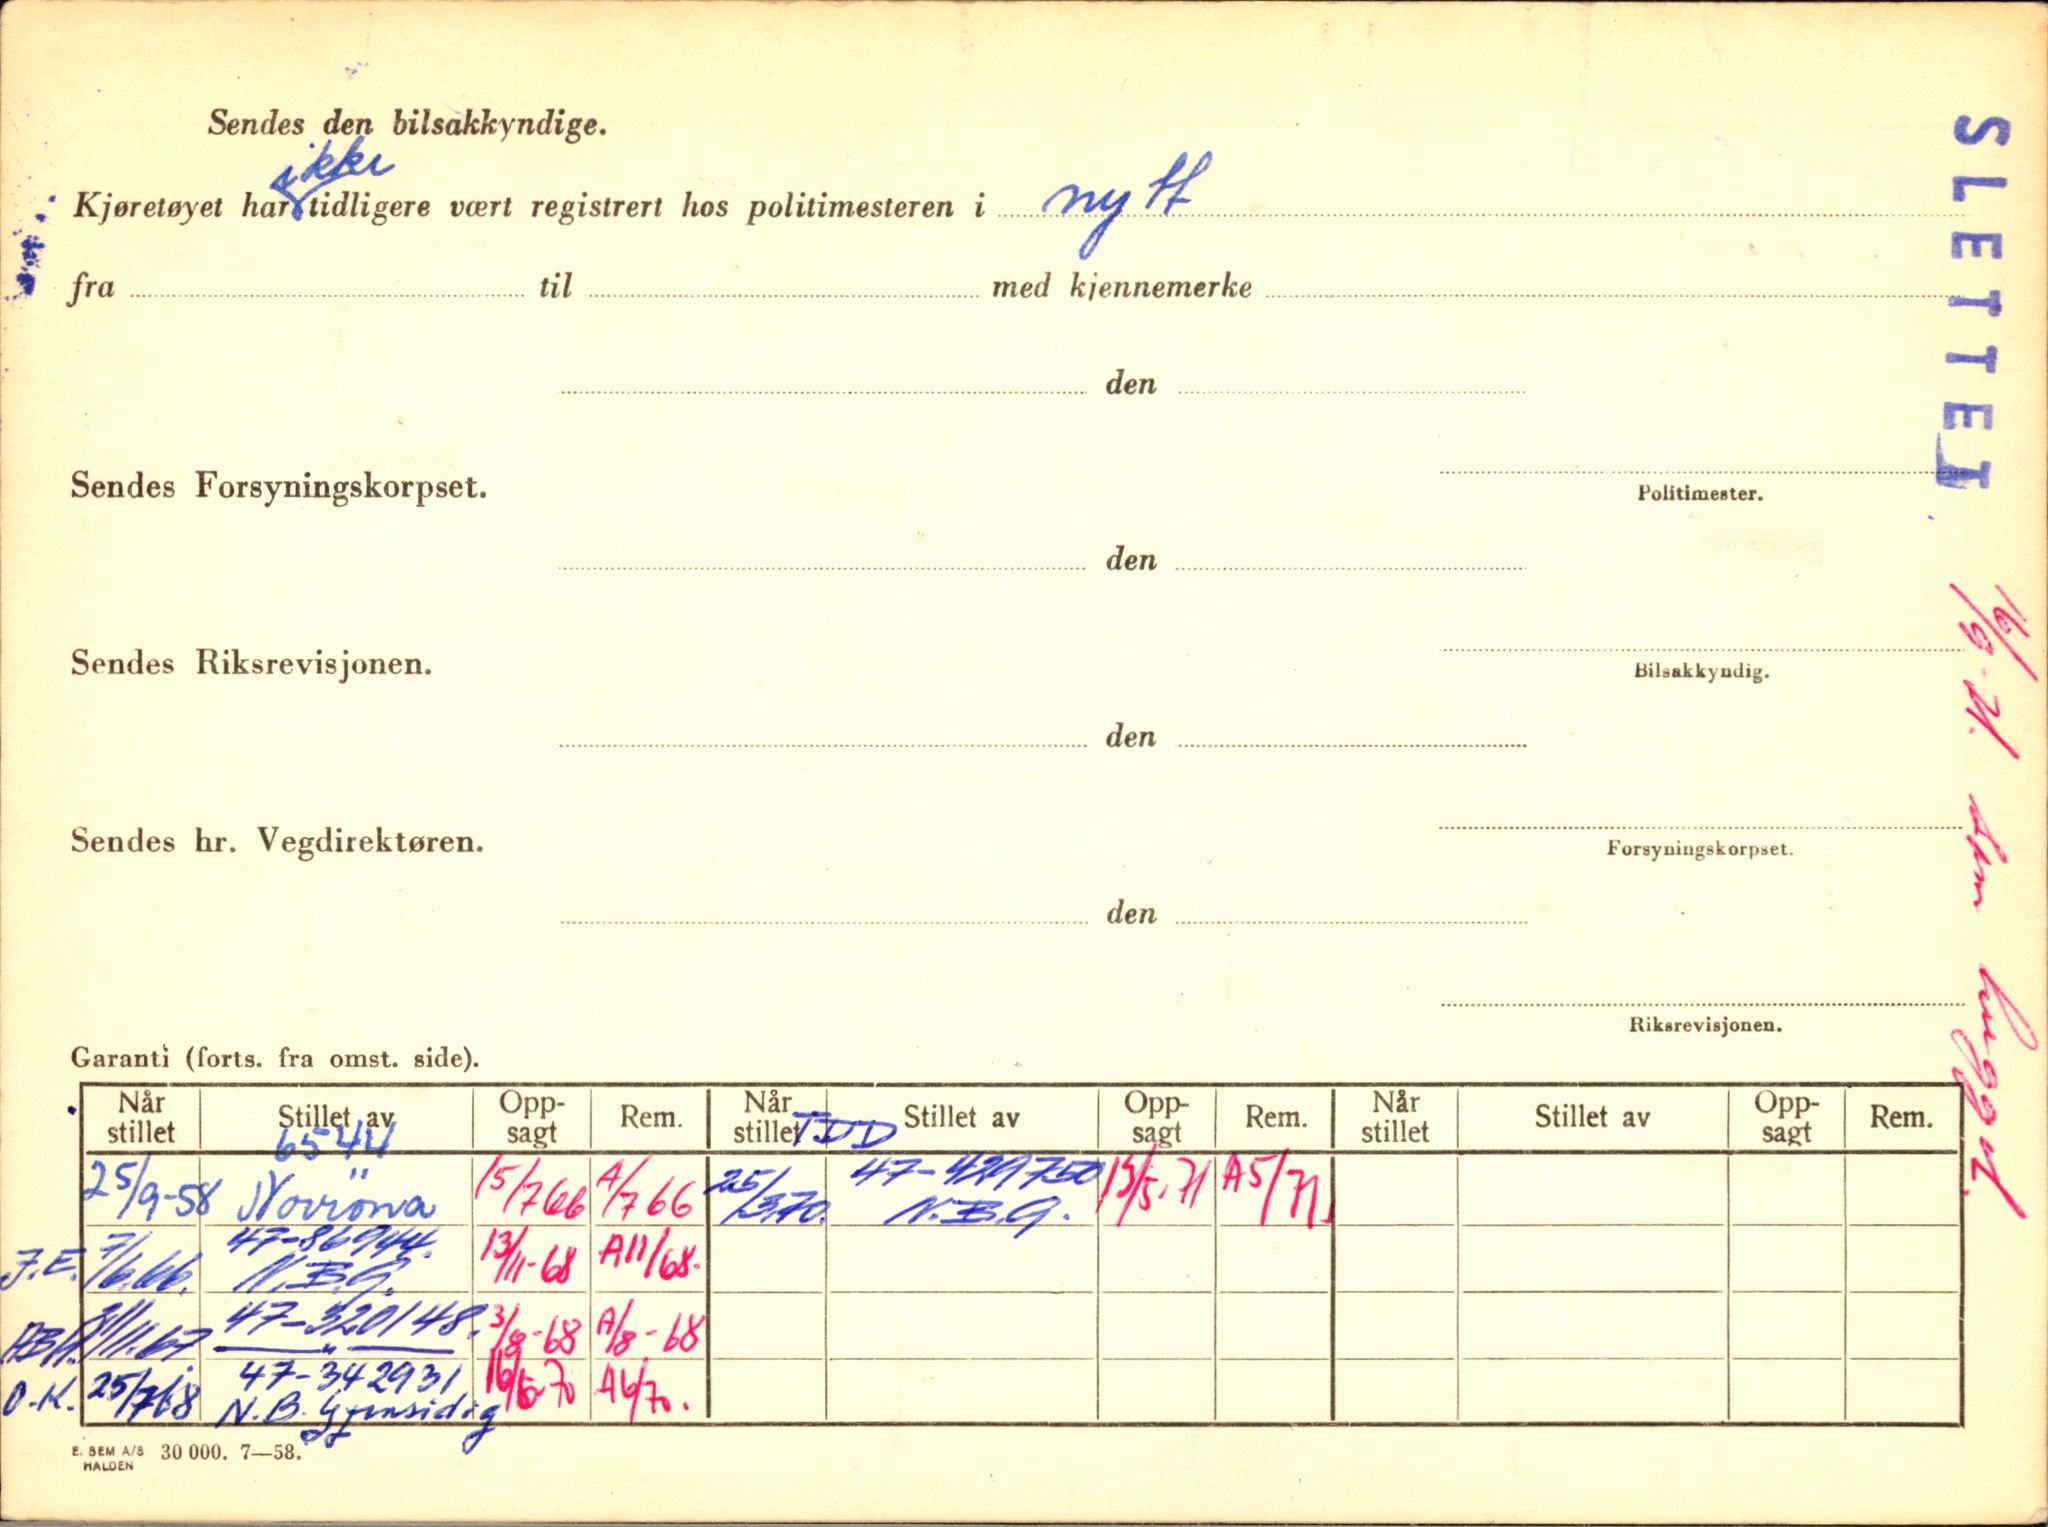 Sendes den bilsakkyndige.
ikke
Kjøretøyet har tidligere vært registrert hos politimesteren i nytt
fra til med kjennemerke
den
Sendes Forsyningskorpset.
Politimester.
den
Sendes Riksrevisjonen.
Bilsakkyndig.
den
Sendes hr. Vegdirektøren.
Forsyningskorpset.
den
Riksrevisjonen.
SLETTET
16/9-71. hugget.
Garanti (forts. fra omst. side).
Når stillet Stillet av Opp-sagt Rem. Når stillet Stillet av Opp-sagt Rem. Når stillet Stillet av Opp-sagt Rem.
6544
TDD
25/9-58 Norrøna 15/7 66 A/7 66 25/3.70. 47-429750 N.B.G. 13/5.71 A5/71
J.E. 7/6.66. 47-86944. N.B.G. 13/11-68 A11/68.
/11.67 47-320148. — " — 3/8-68 A/8-68
O.K. 25/7.68 47-342931 N.B. Gjensidig 16/6-70 A6/70.
E. SEM A/S HALDEN 30 000. 7—58.